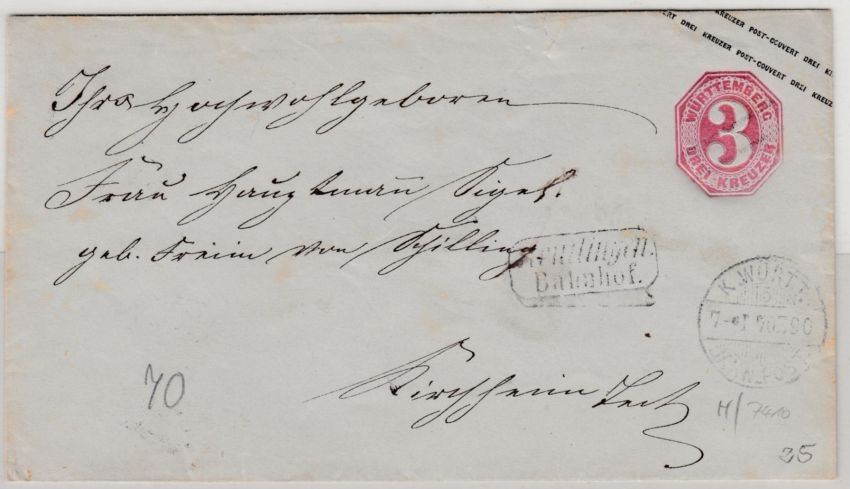 KREUZER POST-COUVERT DREI K
ERT DREI KREUZER POST-COUVERT DREI KREUZ
WÜRTTEMBERG
3
DREI KREUZER
Ihro Hochwohlgeboren
Frau Hauptmann Sigel.
geb. Freiin von Schilling
Reutlingen.
Bahnhof.
K. WÜRTT.
7
70
90
Kirchheim Teck
70
H/7410
25